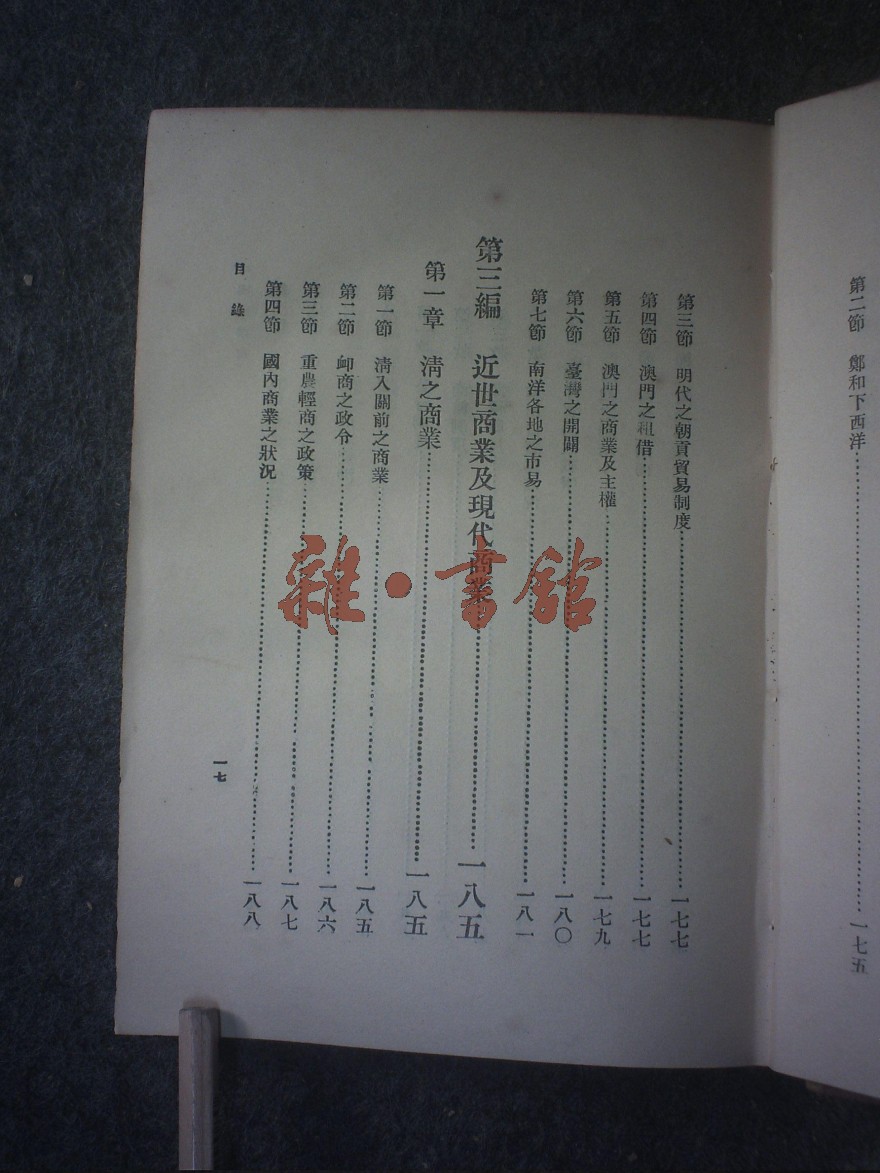 第二節　鄭和下西洋……一七五
第三節　明代之朝貢貿易制度……一七七
第四節　澳門之租借……一七七
第五節　澳門之商業及主權……一七九
第六節　臺灣之開闢……一八〇
第七節　南洋各地之市易……一八一
第三編　近世商業及現代商業……一八五
第一章　清之商業……一八五
第一節　清入關前之商業……一八五
第二節　卹商之政令……一八六
第三節　重農輕商之政策……一八七
第四節　國內商業之狀況……一八八
目錄
一七
雜·書館